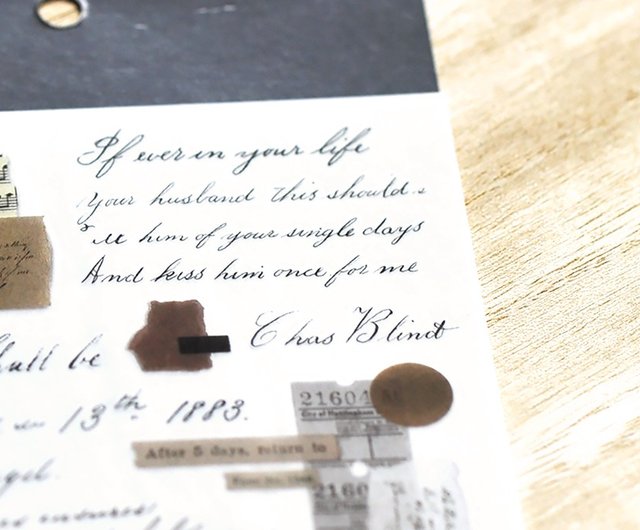 If ever in your life
Your husband this should
him of your single days
And kiss him once for me
Chas Blindt
shall be
13th 1883.
21604
City of Huntingdon
After 5 days, return to
2160